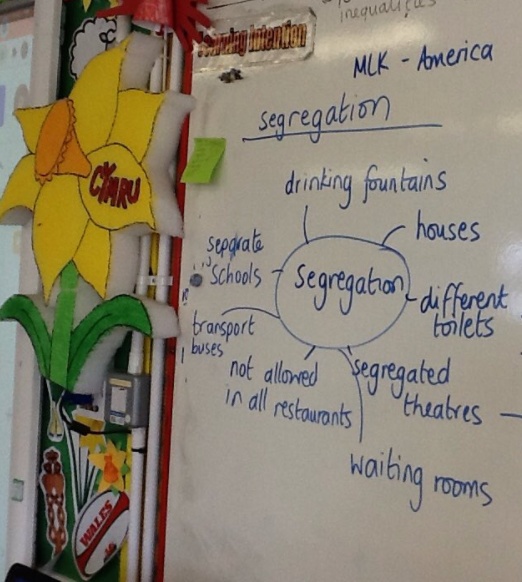 inequalities
Learning Intention
MLK - America
segregation
drinking fountains
houses
separate
schools
segregation
different
toilets
transport
buses
not allowed
in all restaurants
segregated
theatres
waiting rooms
CYMRU
WALES